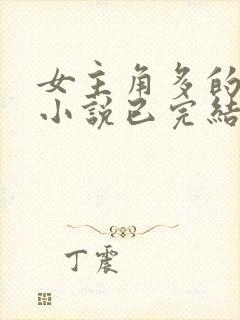 女主角多的
小說已完結
丁震